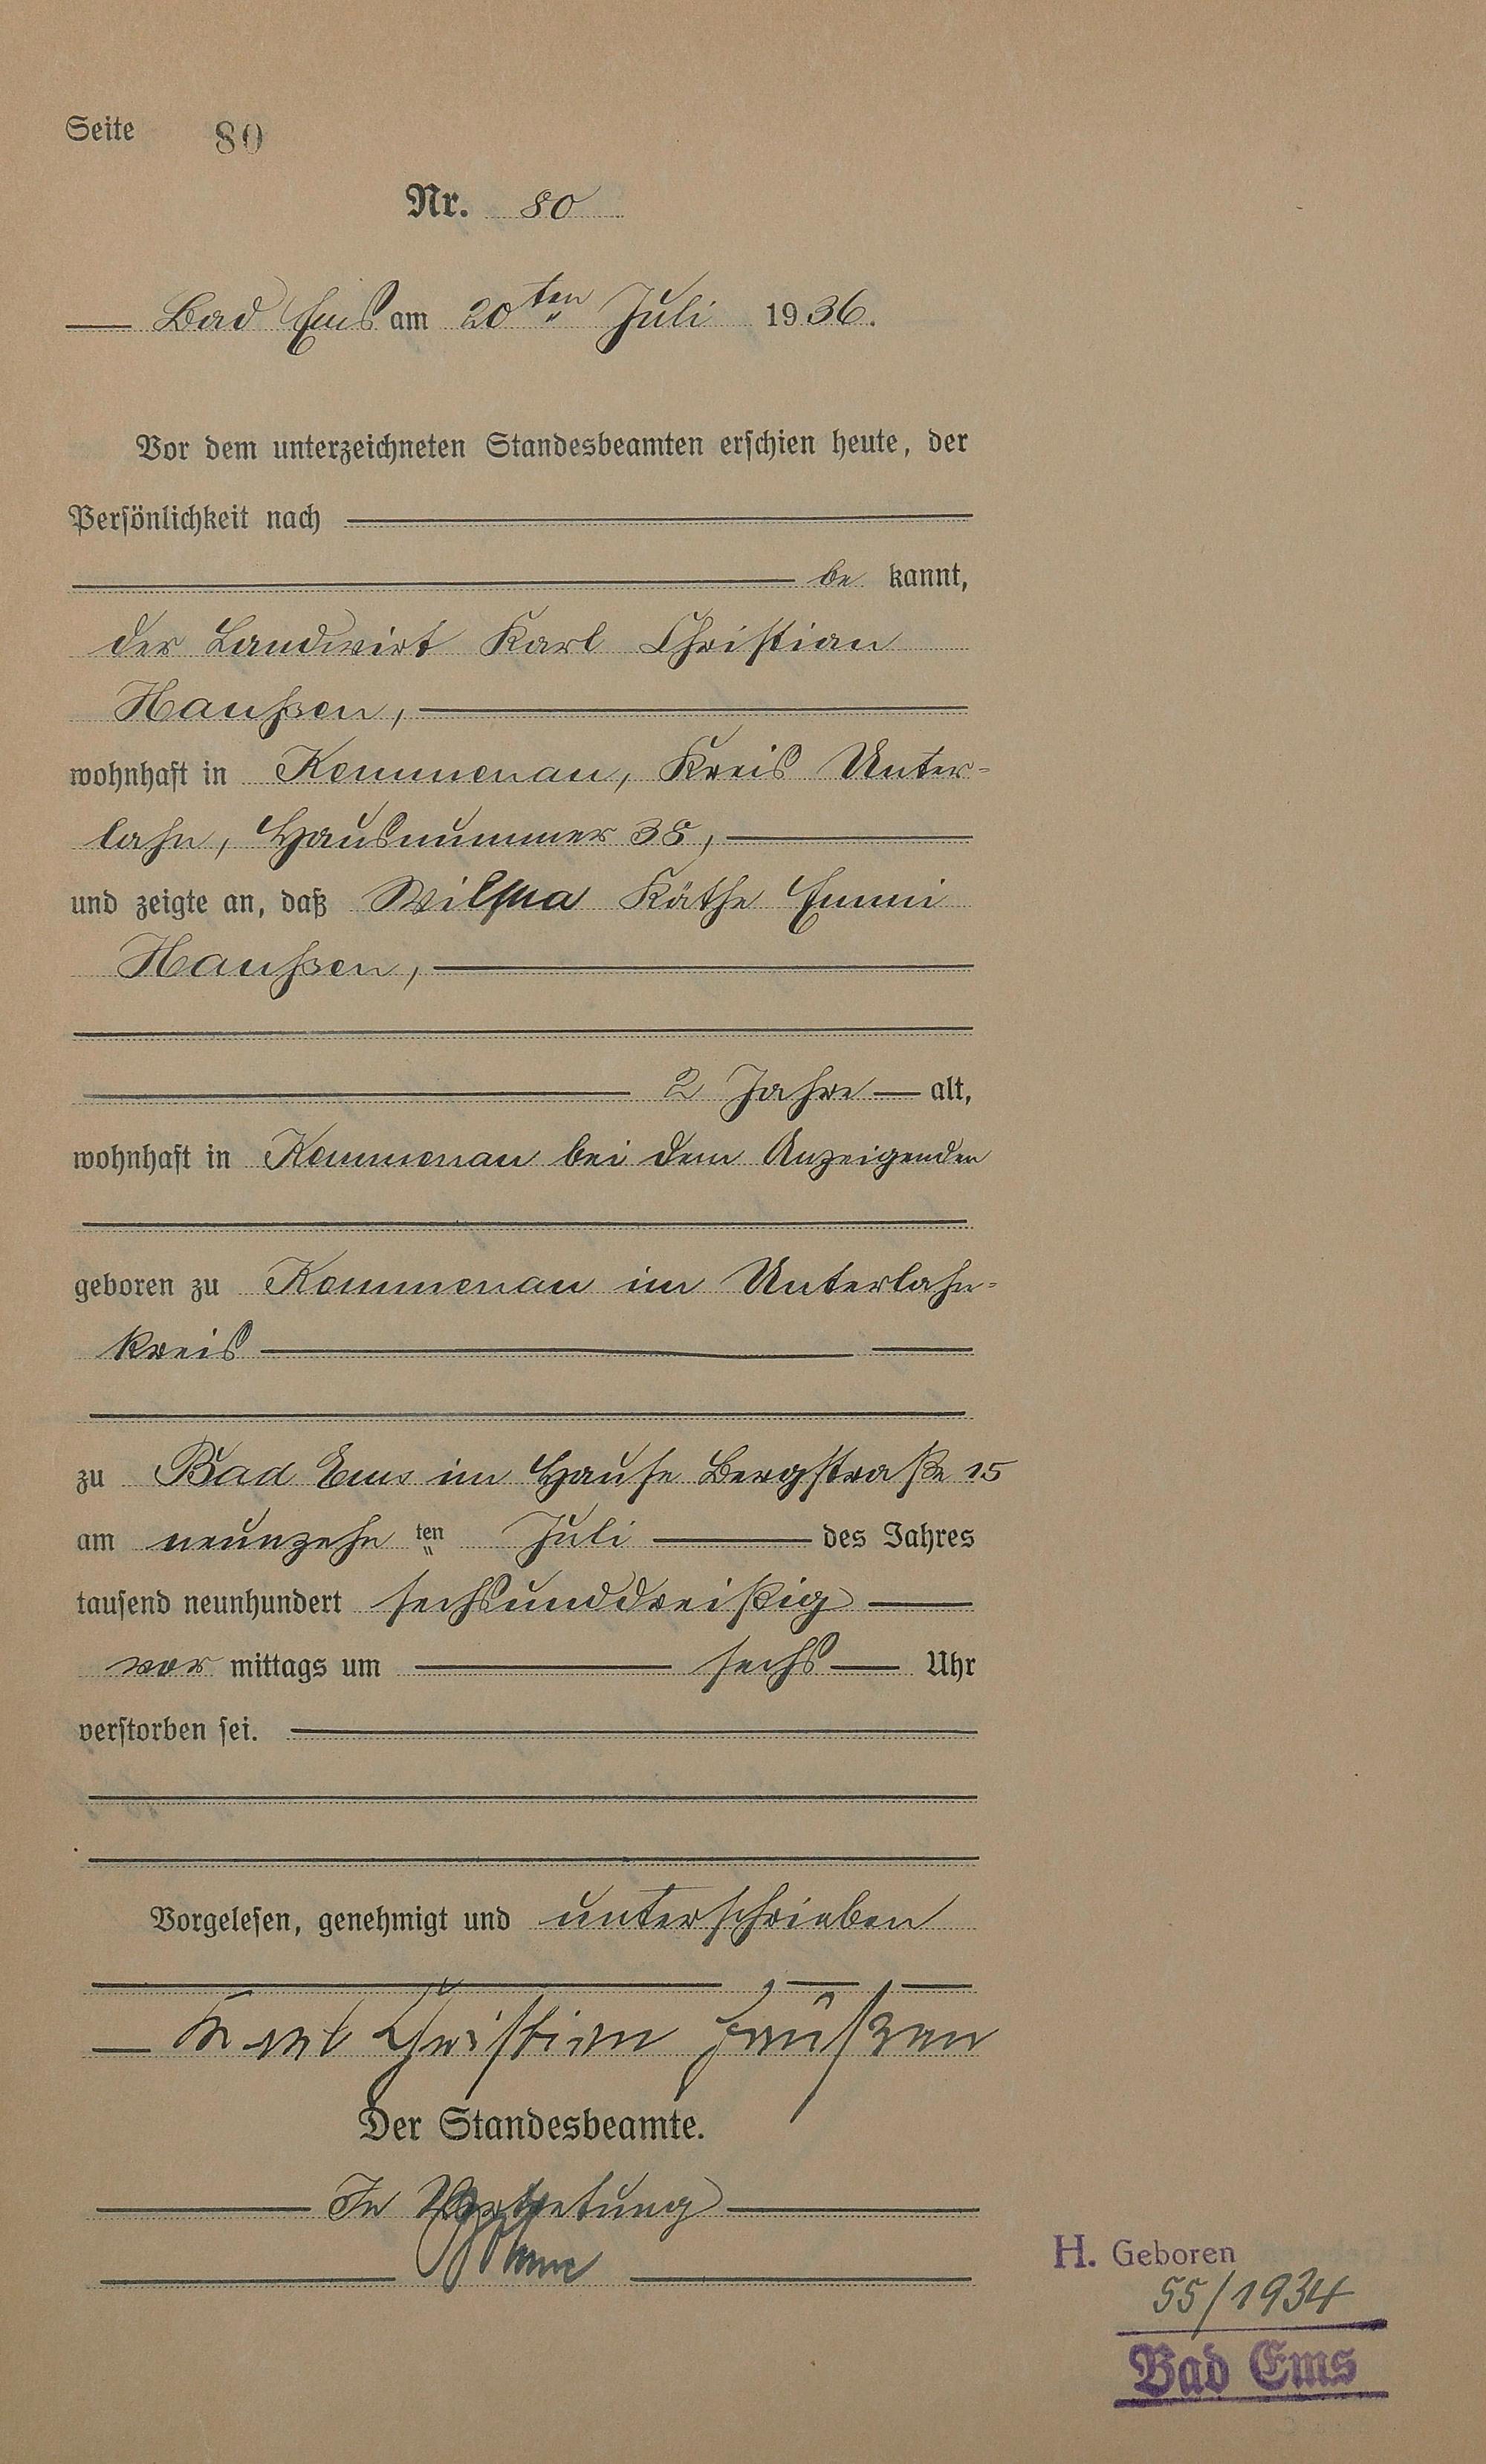 Seite 80
Nr. 80
Bad Ems am 20ten Juli 1936.
Vor dem unterzeichneten Standesbeamten erschien heute, der
Persönlichkeit nach
be kannt,
der Landwirt Karl Christian
Haußen,
wohnhaft in Kemmenau, Kreis Unter-
lahn, Hausnummer 38,
und zeigte an, daß Wilma Käthe Emmi
Haußen,
2 Jahre alt,
wohnhaft in Kemmenau bei dem Anzeigenden
geboren zu Kemmenau im Unterlahn-
kreis
zu Bad Ems im Hause Bergstraße 15
am neunzehn ten Juli des Jahres
tausend neunhundert sechsunddreißig
vor mittags um sechs Uhr
verstorben sei.
Vorgelesen, genehmigt und unterschrieben
Karl Christian Haußen
Der Standesbeamte.
In Vertretung
H. Geboren
55/1934
Bad Ems